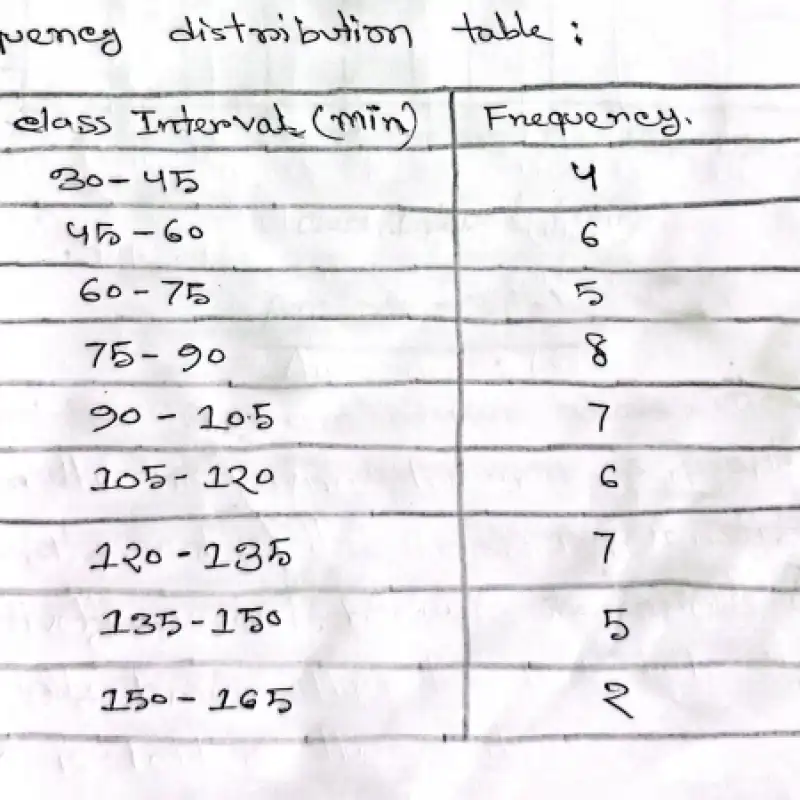 quency distribution table :
class Interval (min) Frequency.
30-45 4
45-60 6
60-75 5
75-90 8
90-105 7
105-120 6
120-135 7
135-150 5
150-165 2